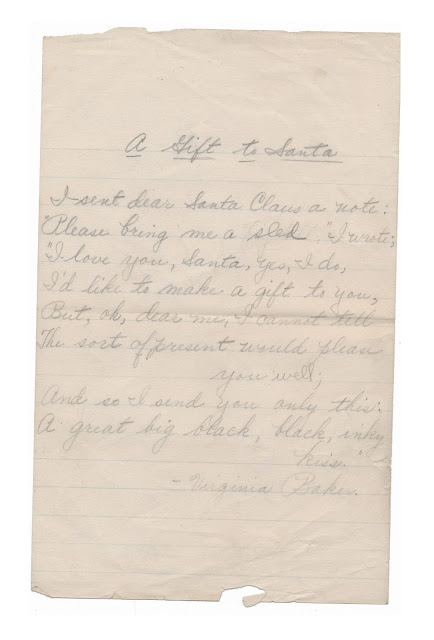 A Gift to Santa
I sent dear Santa Claus a note:
"Please bring me a sled," I wrote;
"I love you, Santa, yes, I do,
I'd like to make a gift to you,
But, oh, dear me, I cannot tell
The sort of present would please
you well;
And so I send you only this:
A great big black, black, inky
kiss."
- Virginia Baker.